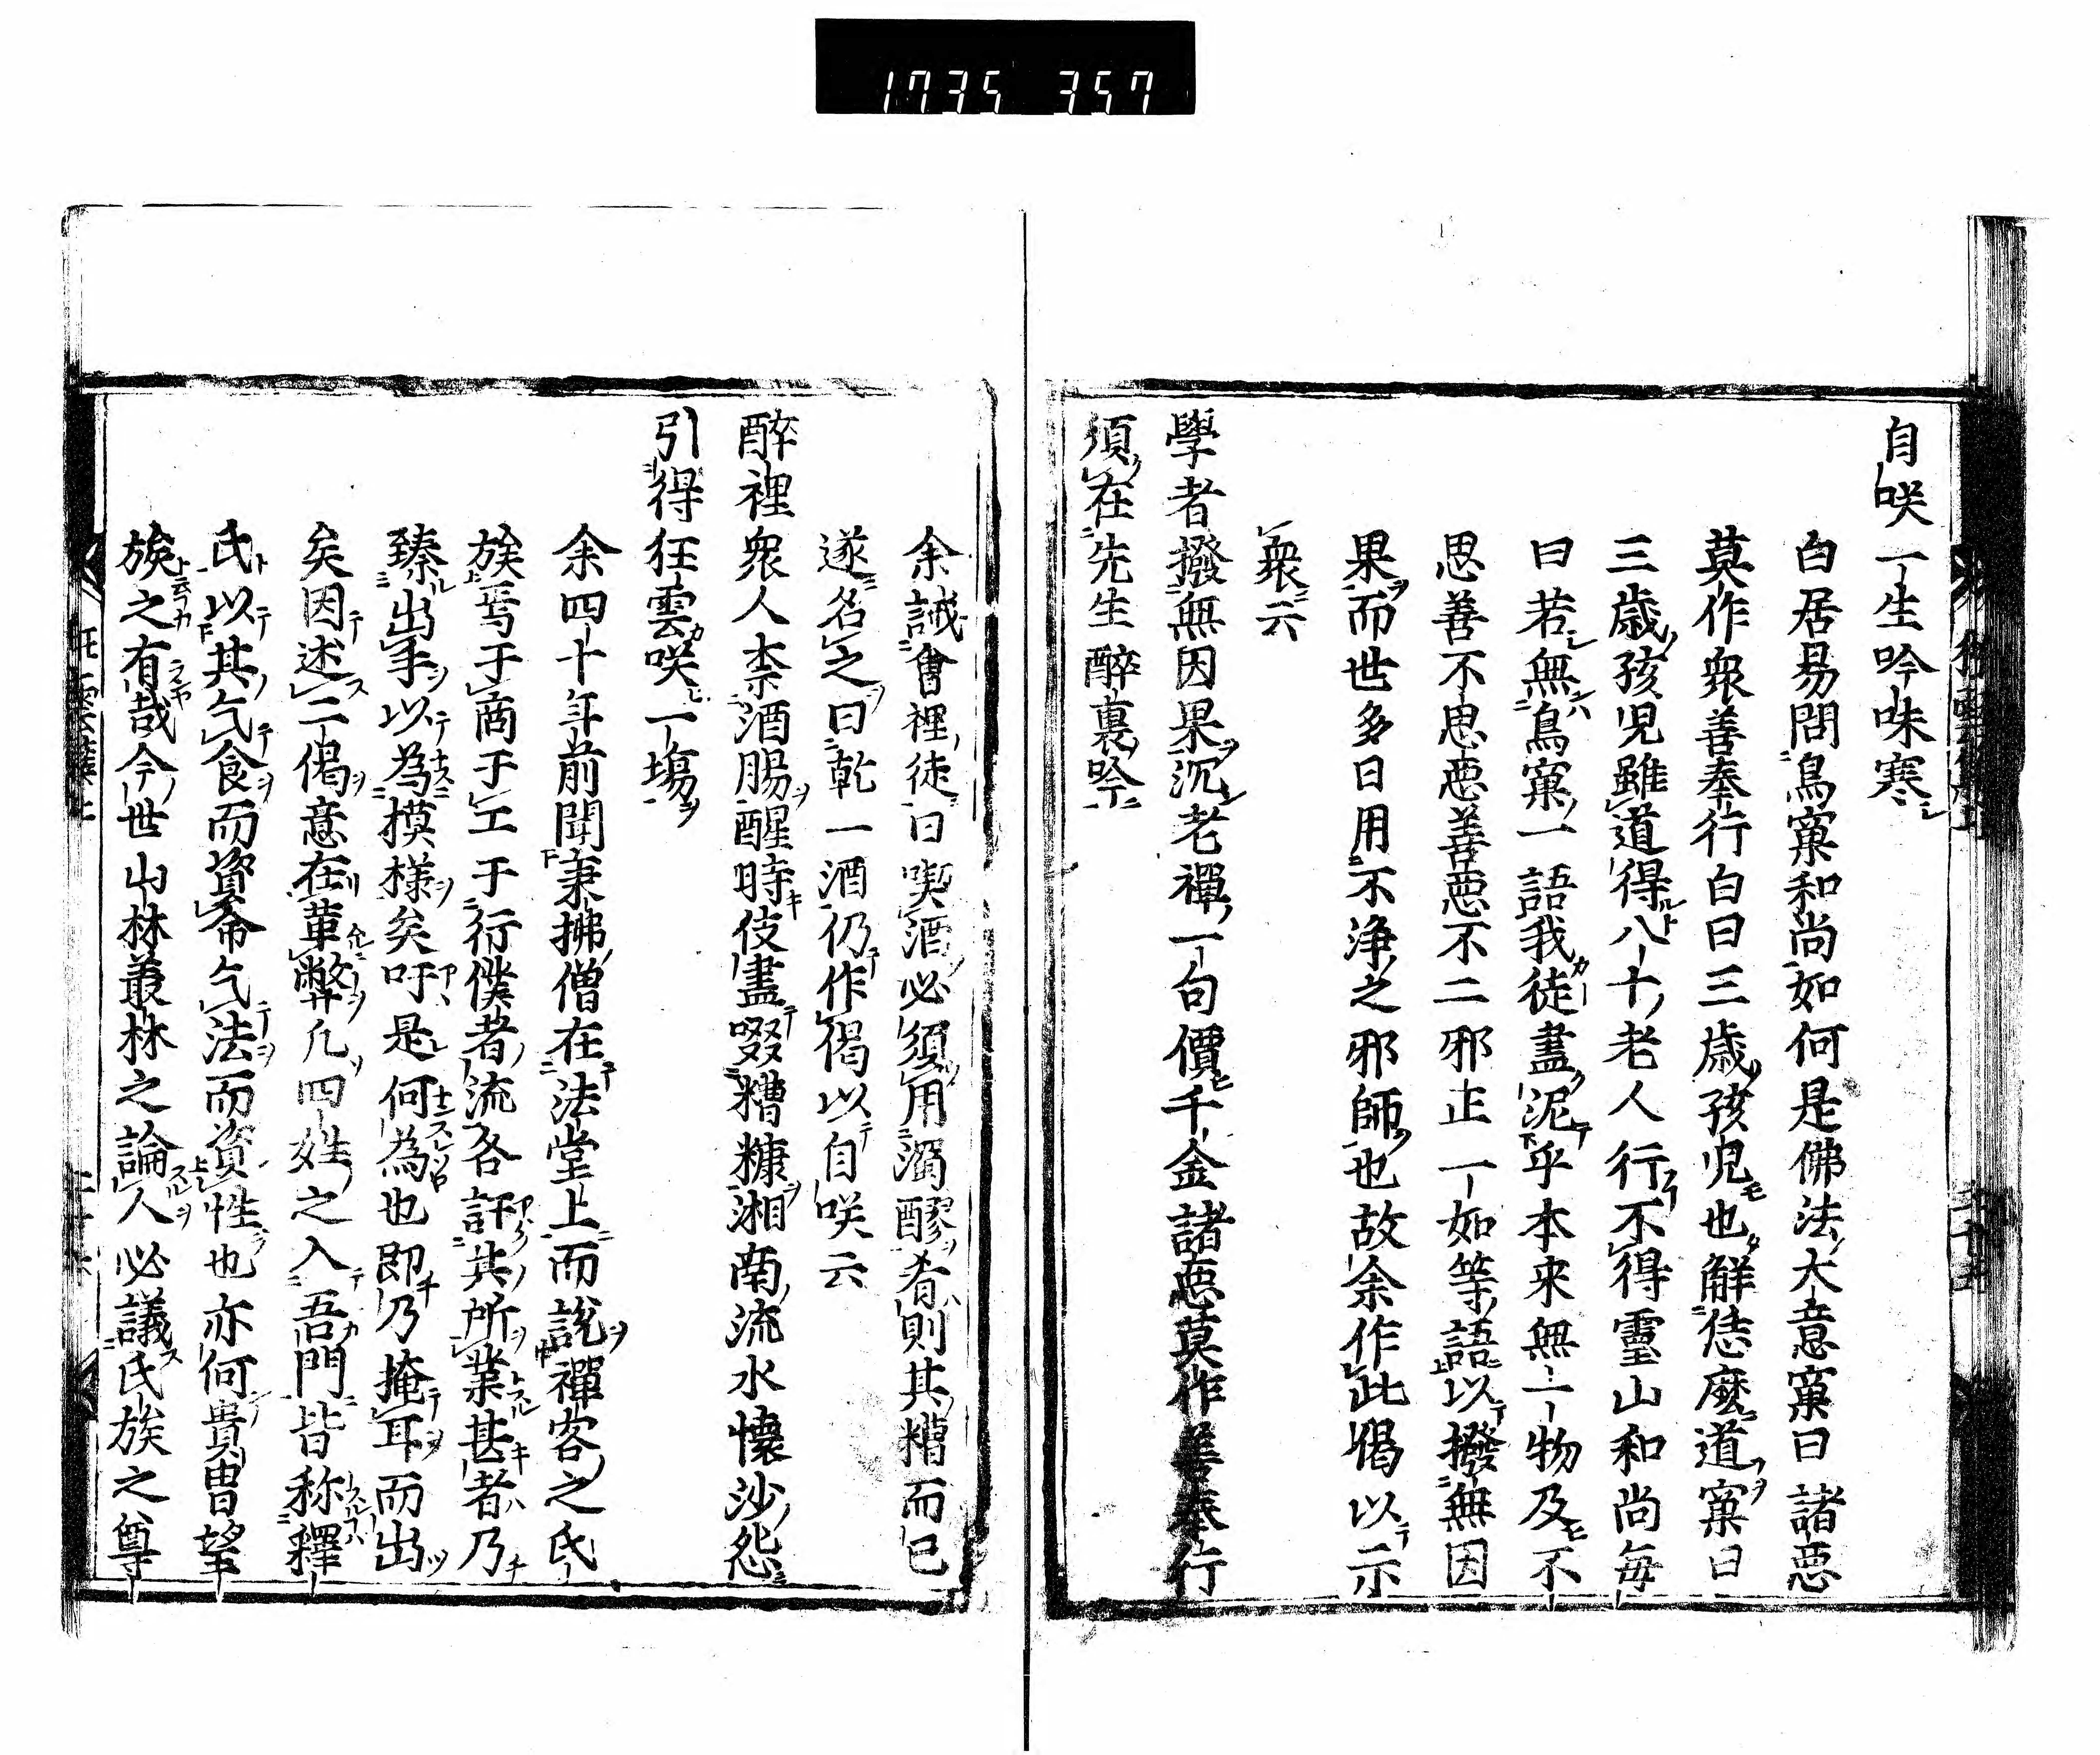 1735 357
自咲一生吟味寒
白居易問鳥窠和尚如何是佛法大意窠曰諸惡
莫作衆善奉行白曰三歳孩児也解恁麽道窠曰
三歳孩児雖道得八十老人行不得靈山和尚毎
曰若無鳥窠一語我徒盡泥乎本来無一物及不
思善不思惡善惡不二邪正一如等語以撥無因
果而世多日用不浄之邪師也故余作此偈以示
衆云
學者撥無因果沉老禪一句價千金諸惡莫作善奉行
須在先生醉裏吟
余誡會裡徒曰喫酒必須用濁醪肴則其糟而已
遂名之曰乾一酒仍作偈以自咲云
醉裡衆人柰酒腸醒時伎盡啜糟糠湘南流水懷沙怨
引得狂雲咲一場
余四十年前聞秉拂僧在法堂上而説禪客之氏
族焉于商于工于行僕者流各訐其所業甚者乃
臻出手以為模様矣吁是何為也即乃掩耳而出
矣因述二偈意在革弊凢四姓之入吾門皆称釋
氏以其乞食而資命乞法而資性也亦何貴曹望
族之有哉今世山林叢林之論人必議氏族之尊
狂雲集上